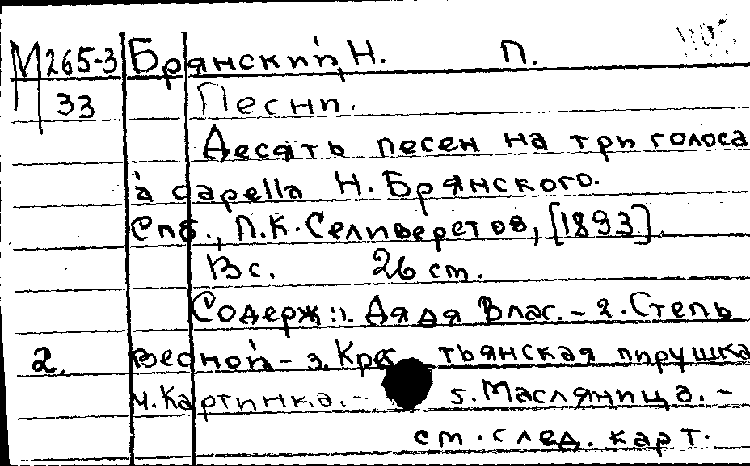 М 265-3 Брянский, Н. П.
33 Песни.
Десять песен на три голоса
à capella Н. Брянского.
Спб., П.К. Селиверстов, [1893].
В с. 26 см.
Содерж: 1. Дядя Влас. - 2. Степь
2. весной - 3. Крестьянская пирушка
4. Картинка. - 5. Масляница. -
см. след. карт.